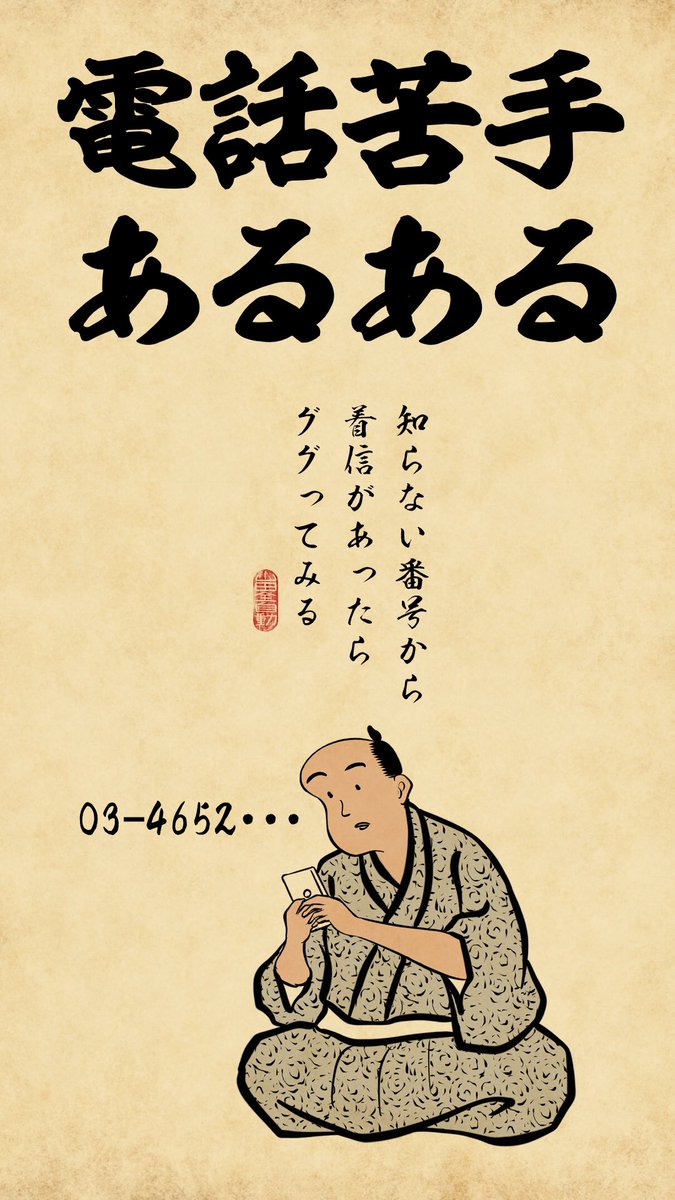 電話苦手
あるある
知らない番号から
着信があったら
ググってみる
03-4652・・・